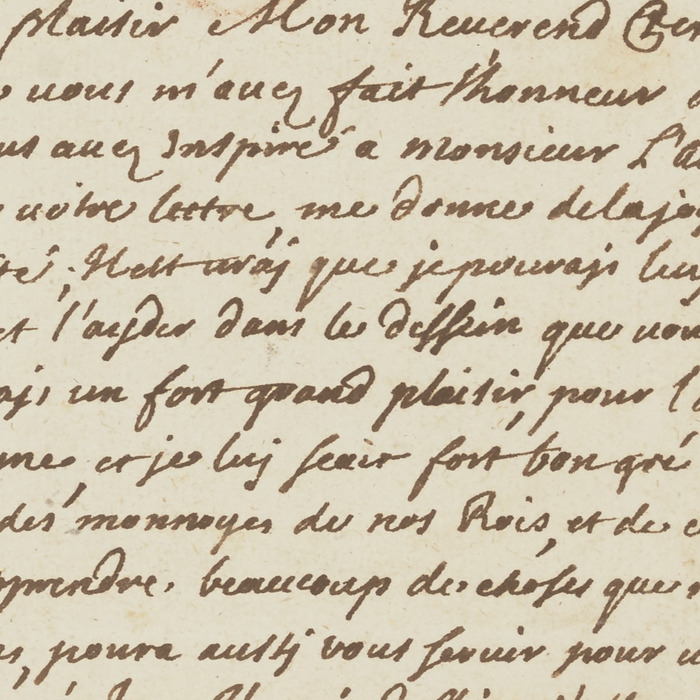 plaisir Mon Reverend
vous m'avez fait l'honneur
avez Inspiré a monsieur
votre lettre, me donne delajoy
Il est vraj que je pourajs luj
et l'ayder dans le dessein que vou
ajs un fort grand plaisir, pour l
me, et je luj scais fort bon gré
des monnoyes de nos Rois, et de
pprendre, beaucoup de choses que
poura aussj vous servir pour